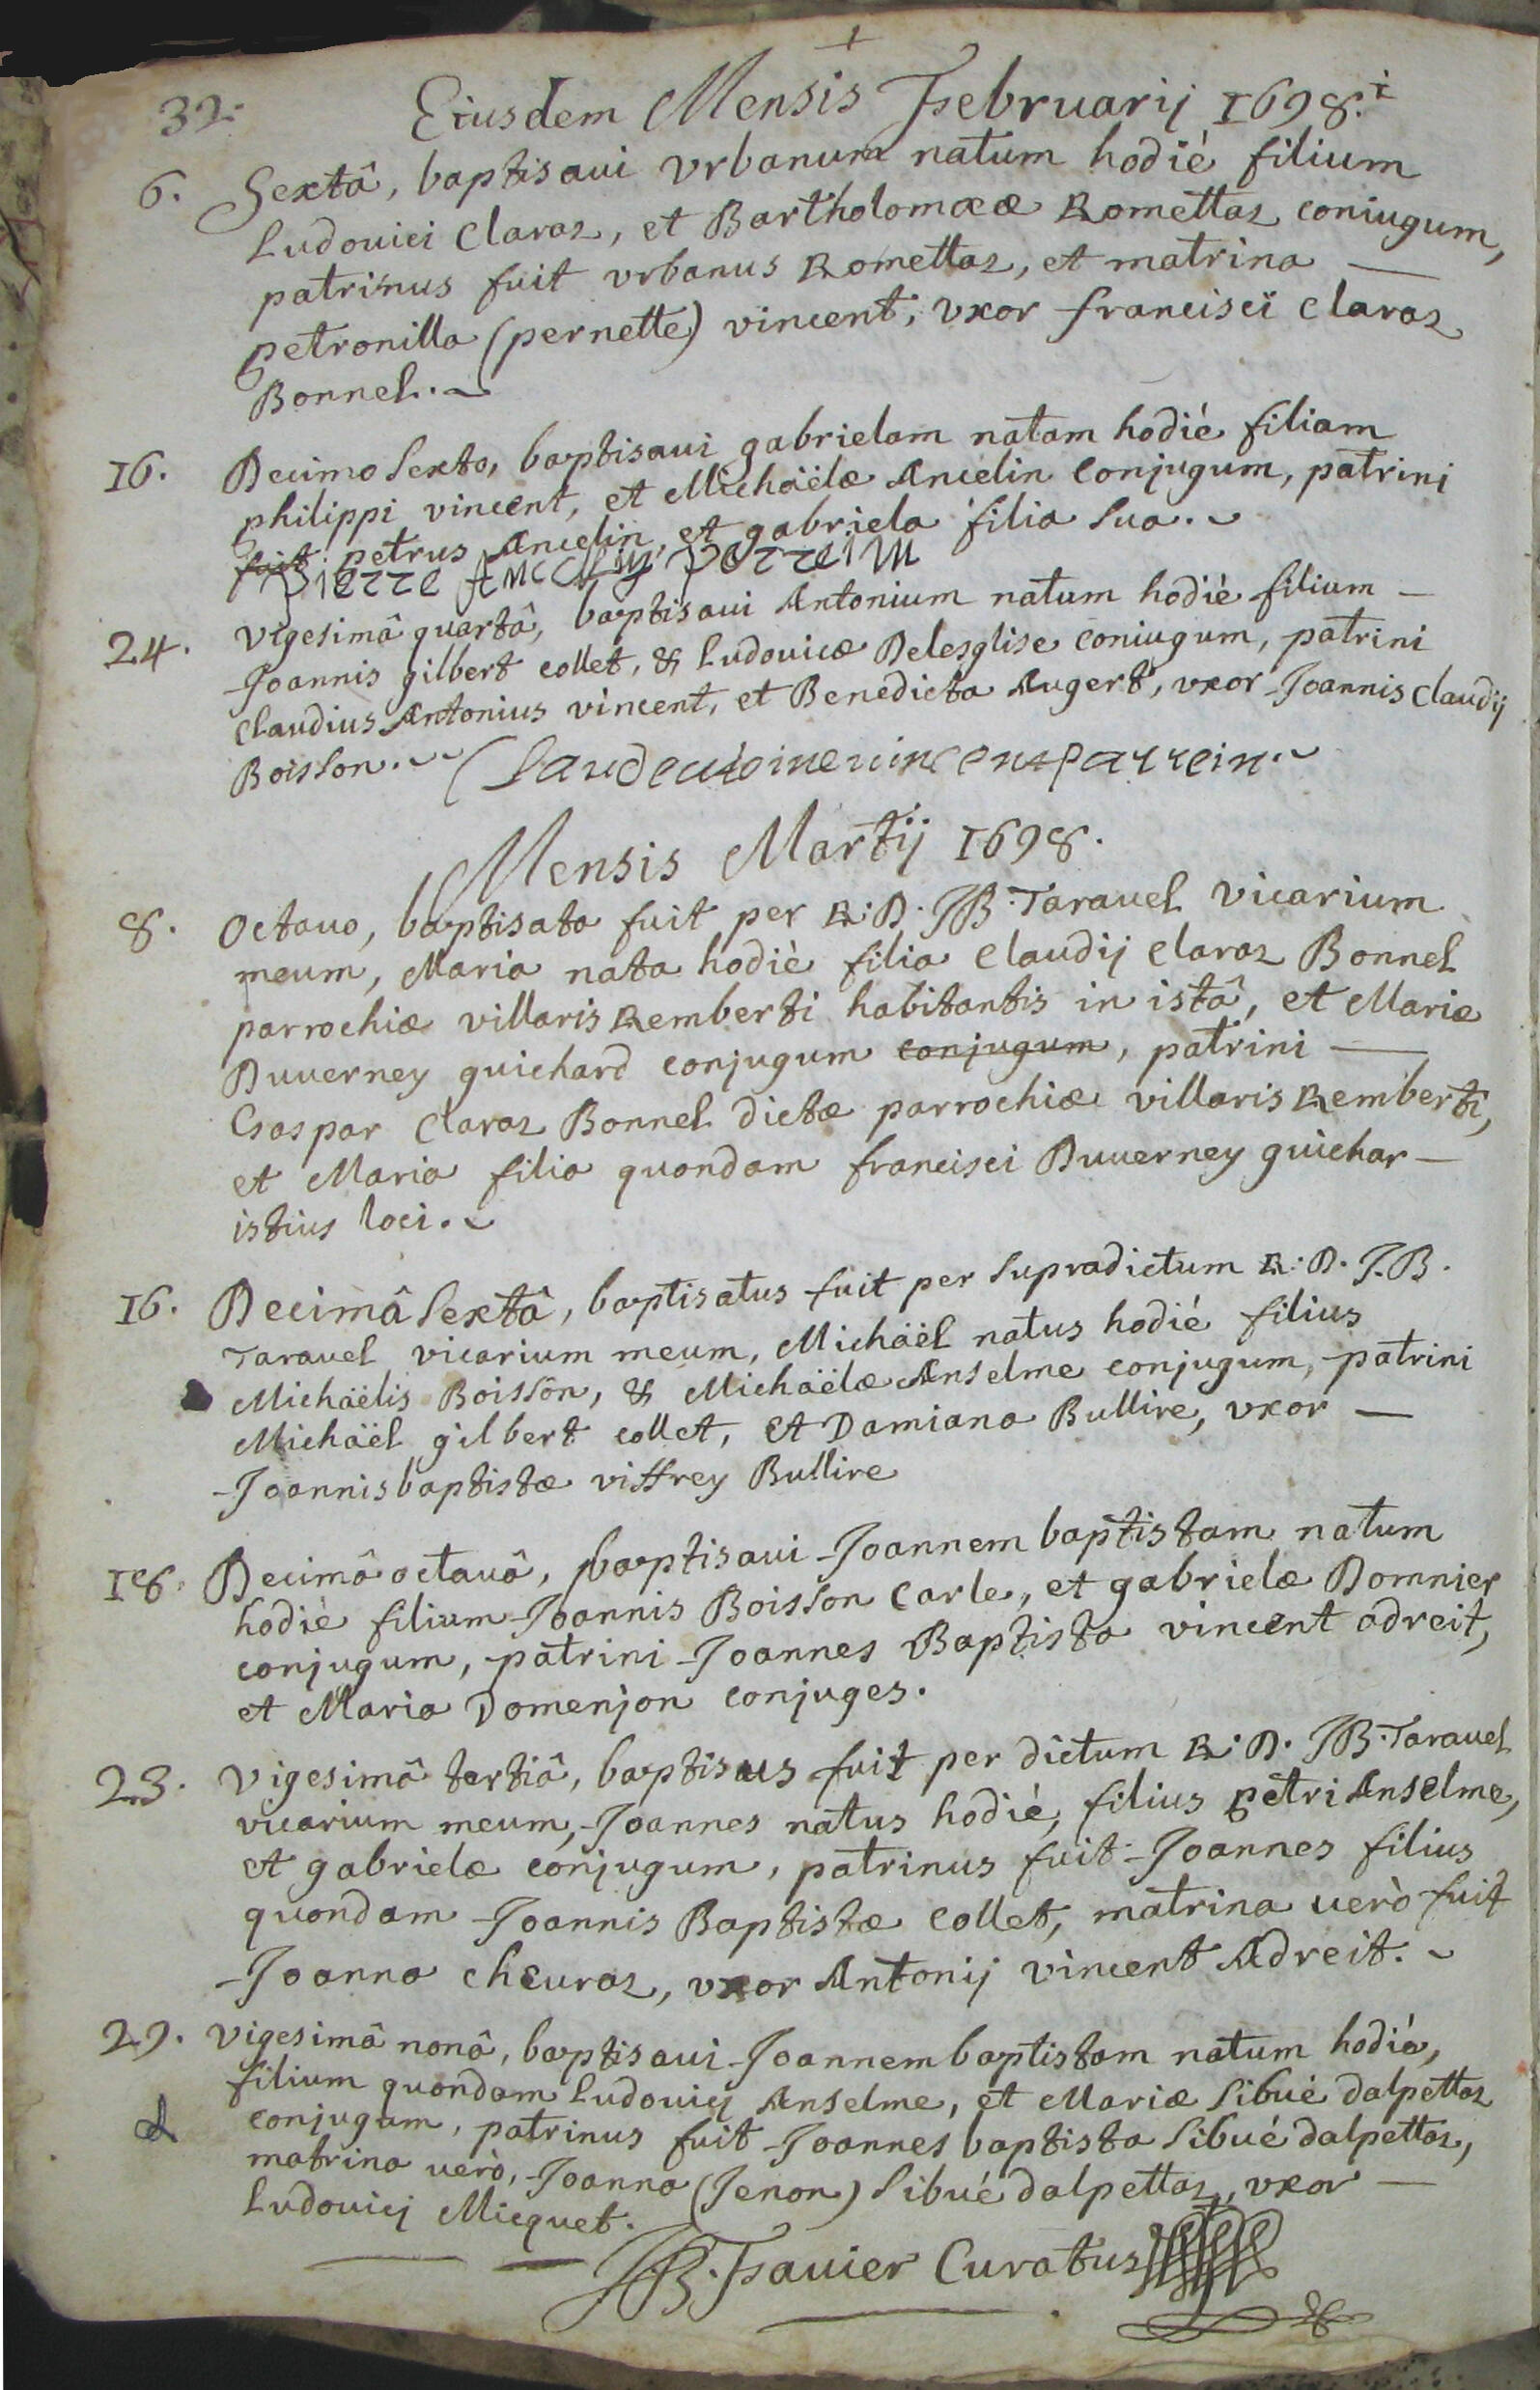 32.
Eiusdem Mensis Februarij 1698.
6. Sextâ, baptisaui vrbanum natum hodiè filium
Ludouici Claraz, et Bartholomææ Romettaz coniugum,
patrinus fuit vrbanus Romettaz, et matrina —
petronilla (pernette) vincent, vxor francisci Claraz
Bonnel.
16. Decimo Sexto, baptisaui gabrielam natam hodiè filiam
philippi vincent, et Michäelæ Ancelin Conjugum, patrini
fuit petrus Ancelin, et gabriela filia sua.
pierre Ancelin perrein
24. vigesimâ quartâ, baptisaui Antonium natum hodiè filium —
Joannis gilbert collet, & Ludouicæ Delesglise coniugum, patrini
Claudius Antonius vincent, et Benedicta Augert, vxor Joannis Claudij
Boisson. Claudeantoinevincentparrein.
Mensis Martij 1698.
8. Octauo, baptisata fuit per R. D. JB. Tarauel vicarium
meum, Maria nata hodiè filia Claudij Claraz Bonnel
parrochiæ villaris Remberti habitantis in istâ, et Mariæ
Duuerney guichard conjugum conjugum, patrini —
Gaspar Claraz Bonnel dictæ parrochiæ villaris Remberti,
et Maria filia quondam francisci Duuerney guichar —
istius loci.
16. Decimâ Sextâ, baptisatus fuit per supradictum R. D. J.B.
Tarauel vicarium meum, Michäel natus hodiè filius
Michäelis Boisson, & Michäelæ Anselme conjugum, patrini
Michäel gilbert collet, et Damiana Bullire, vxor —
Joannisbaptistæ viffrey Bullire
18. Decimâ octauâ, baptisaui Joannem baptistam natum
hodiè filium Joannis Boisson Carle, et gabrielæ Domnier
conjugum, patrini Joannes Baptista vincent adreit,
et Maria Domenjon conjuges.
23. Vigesimâ tertiâ, baptisus fuit per dictum R. D. JB. Tarauel
vicarium meum, Joannes natus hodiè, filius petri Anselme,
et gabrielæ conjugum, patrinus fuit Joannes filius
quondam Joannis Baptistæ Collet, matrina uerò fuit
Joanna cheuraz, vxor Antonij vincent Adreit.
29. vigesimâ nonâ, baptisaui Joannembaptistam natum hodiè,
filium quondam Ludouicj Anselme, et Mariæ Sibué dalpettaz
conjugum, patrinus fuit Joannes baptista Sibué dalpettaz,
matrina uerò, Joanna (Jenon) Sibué dalpettaz, vxor —
Ludouicj Micquet.
JB. Fauier Curatus